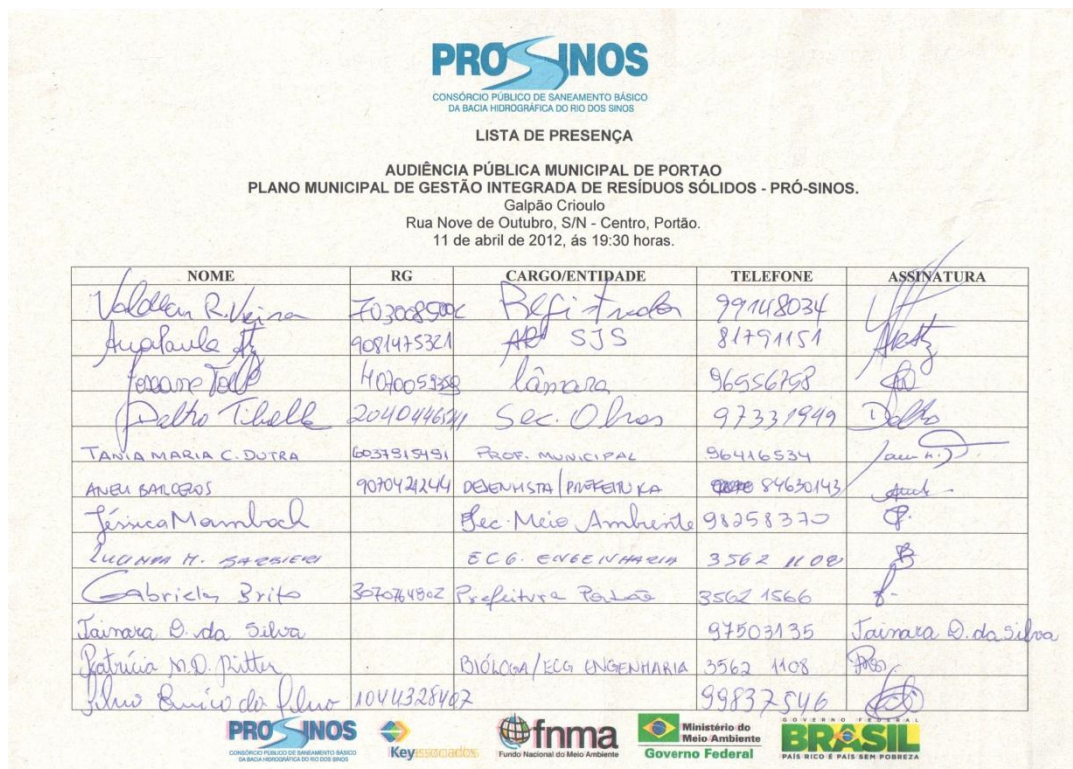 PROSINOS
CONSÓRCIO PÚBLICO DE SANEAMENTO BÁSICO
DA BACIA HIDROGRÁFICA DO RIO DOS SINOS
LISTA DE PRESENÇA
AUDIÊNCIA PÚBLICA MUNICIPAL DE PORTAO
PLANO MUNICIPAL DE GESTÃO INTEGRADA DE RESÍDUOS SÓLIDOS - PRÓ-SINOS.
Galpão Crioulo
Rua Nove de Outubro, S/N - Centro, Portão.
11 de abril de 2012, ás 19:30 horas.
NOME RG CARGO/ENTIDADE TELEFONE ASSINATURA
R. Vieira 99148034
Ana Paula 9081475321 SJS 81791151
Câmara 96556798
Delho Tibolla Sec. Obras 97331949 Delho
TANIA MARIA C. DUTRA 6037915491 PROF. MUNICIPAL 96416534
BARCELOS 9070421244 DESENHISTA/PREFEITURA 84630143
Jéssica Sec. Meio Ambiente 98258370
M. BARBIERI ECG. ENGENHARIA 3562 1108
Gabriela Brito Prefeitura Portão 3562 1566
Tainara D. da Silva 97503135 Tainara D. da Silva
Patrícia M.D. Pitter BIÓLOGA/ECG ENGENHARIA 3562 1108
1044328407 99837546
PROSINOS
CONSÓRCIO PÚBLICO DE SANEAMENTO BÁSICO
DA BACIA HIDROGRÁFICA DO RIO DOS SINOS
Keyassociados
fnma
Fundo Nacional do Meio Ambiente
Ministério do
Meio Ambiente
Governo Federal
GOVERNO FEDERAL
BRASIL
PAÍS RICO É PAÍS SEM POBREZA